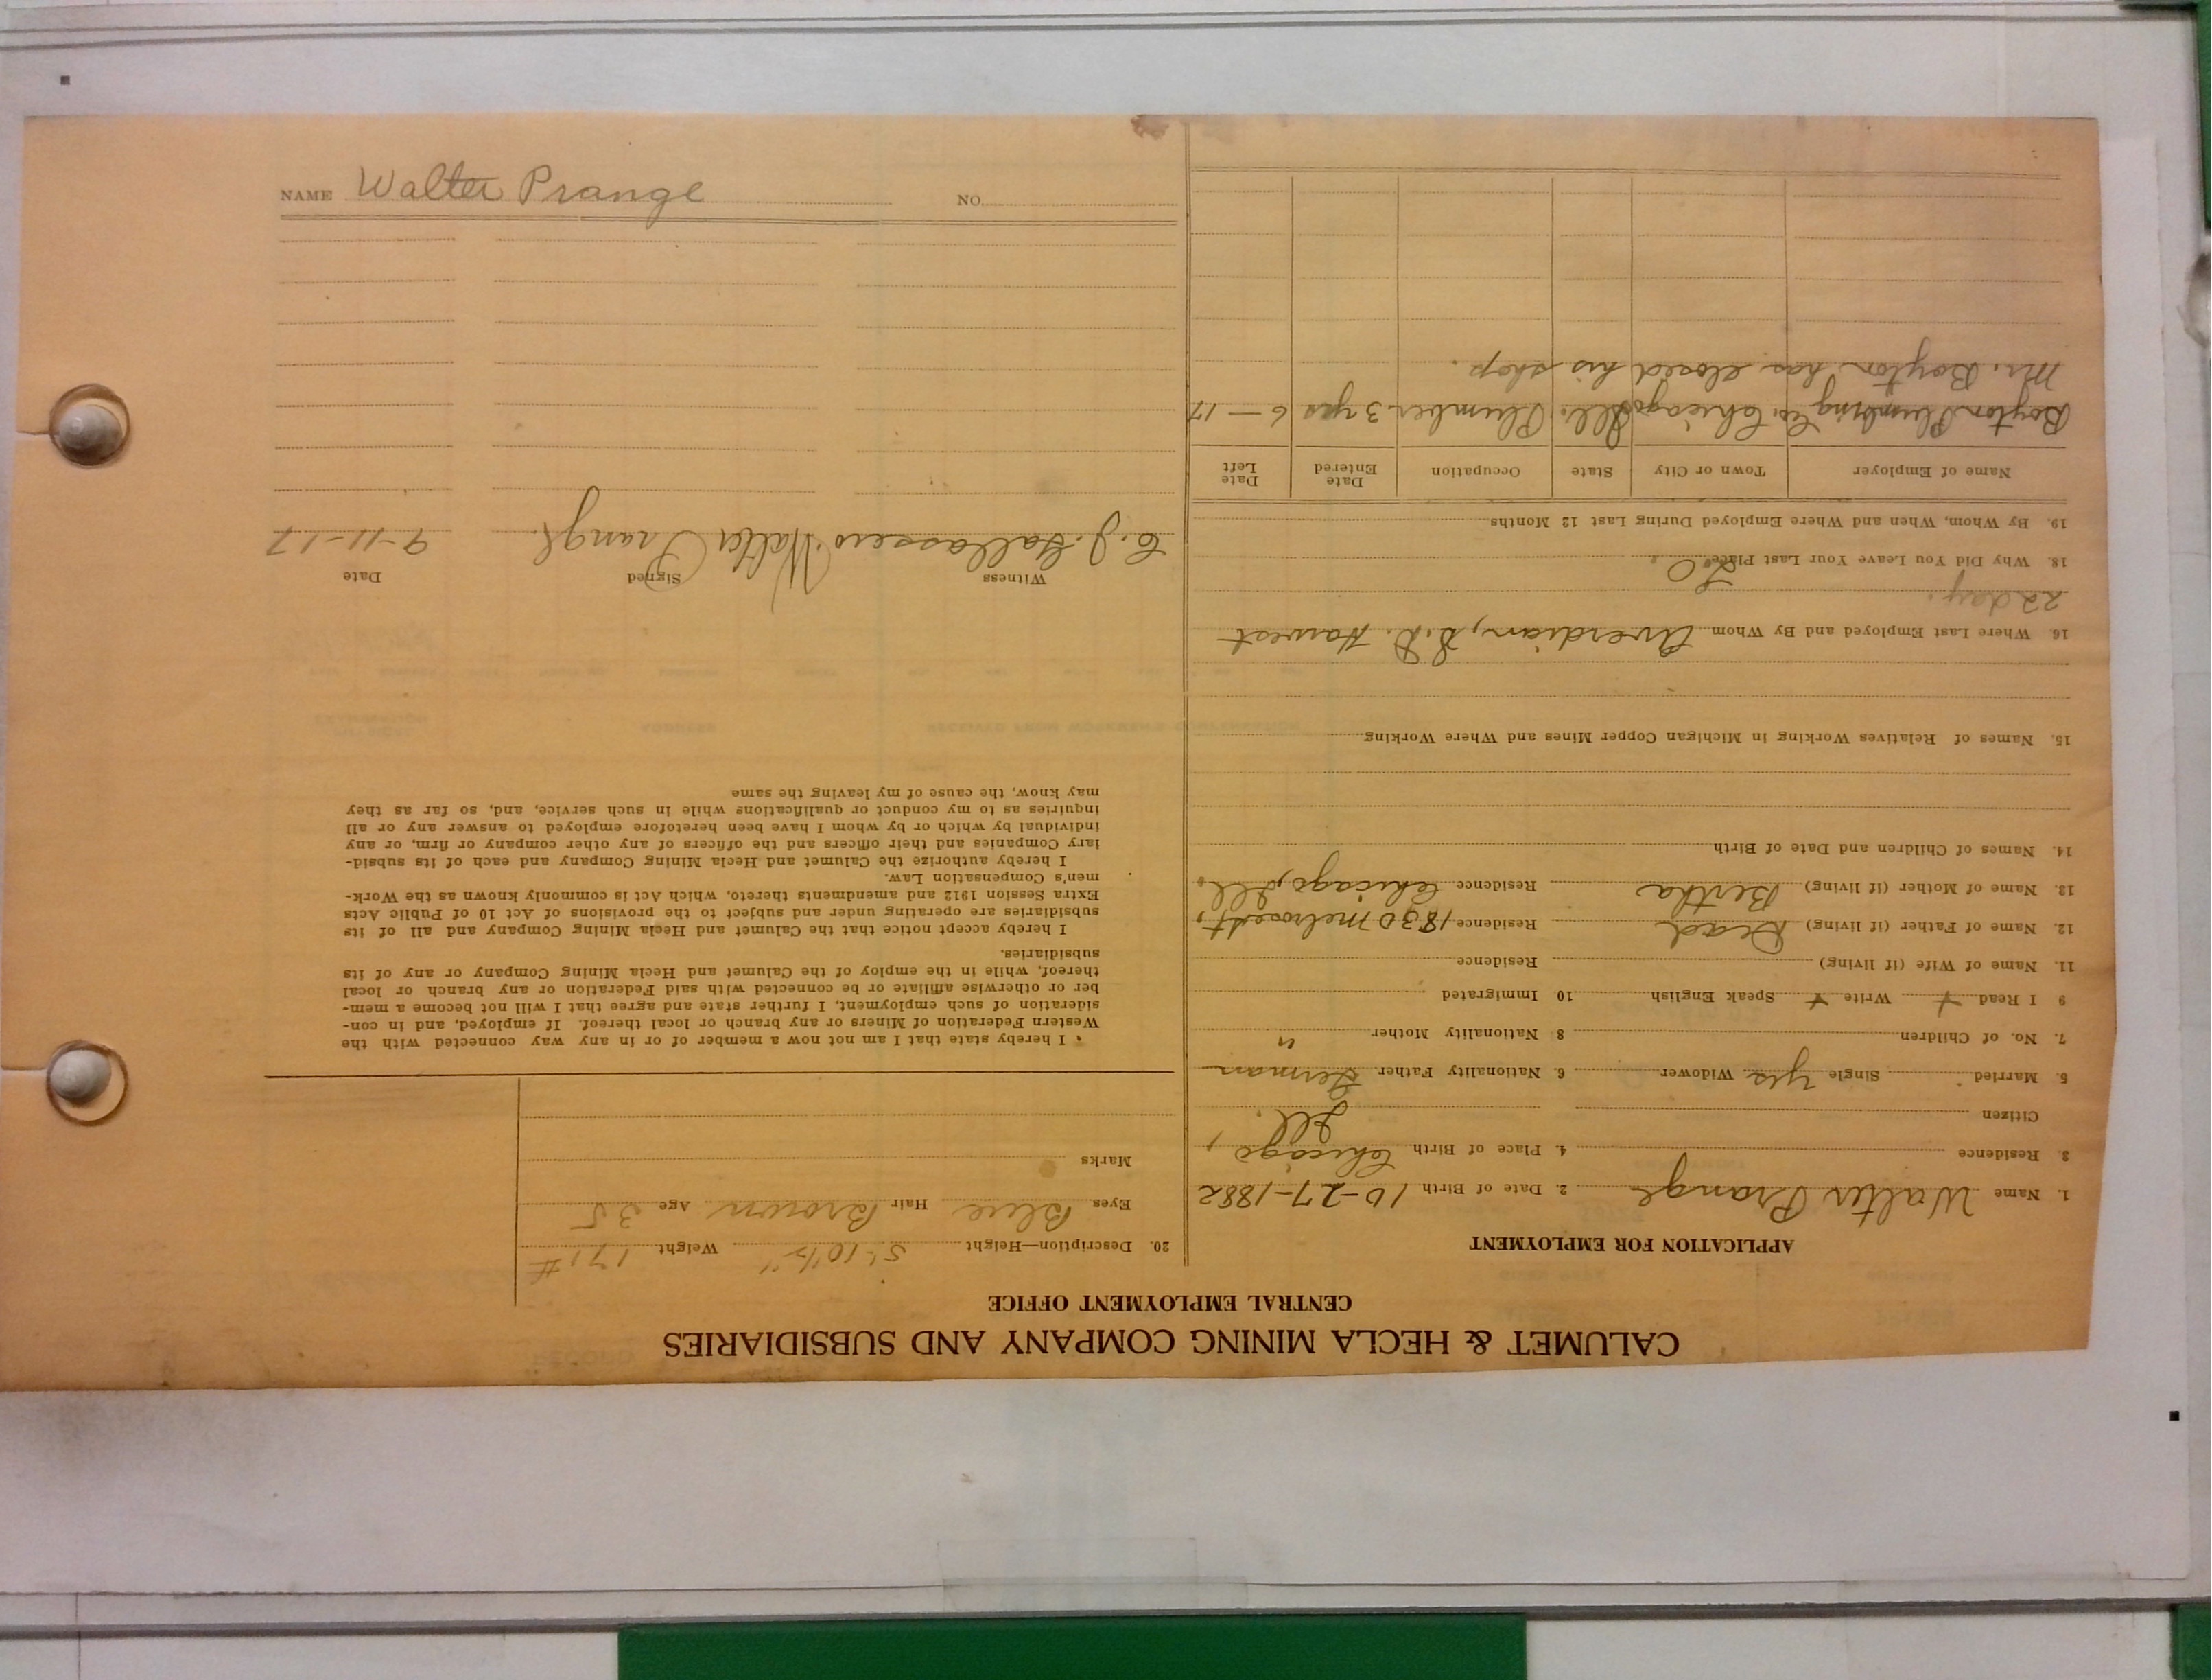 CALUMET & HECLA MINING COMPANY AND SUBSIDIARIES
CENTRAL EMPLOYMENT OFFICE
APPLICATION FOR EMPLOYMENT
1. Name Walter Prange 2. Date of Birth 10-27-1882
3. Residence 4. Place of Birth Chicago,
Citizen Ill.
5. Married Single yes Widower 6. Nationality Father German
7. No. of Children 8 Nationality Mother "
9 I Read + Write + Speak English 10 Immigrated
11. Name of Wife (if living) Residence
12. Name of Father (if living) Dead Residence 1830 Melrose st,
13. Name of Mother (if living) Bertha Residence Chicago, Ill.
14. Names of Children and Date of Birth
15. Names of Relatives Working in Michigan Copper Mines and Where Working
16. Where Last Employed and By Whom S.D. Harvest
22 day.
18. Why Did You Leave Your Last Place
19. By Whom, When and Where Employed During Last 12 Months
Name of Employer Town or City State Occupation Date Entered Date Left
Boyton Plumbing Co. Chicago Ill. Plumber 3 yrs 6-17
Mr. Boyton has closed his shop.
20. Description—Height 5' 10 1/2" Weight 171 #
Eyes Blue Hair Brown Age 35
Marks
I hereby state that I am not now a member of or in any way connected with the
Western Federation of Miners or any branch or local thereof. If employed, and in con-
sideration of such employment, I further state and agree that I will not become a mem-
ber or otherwise affiliate or be connected with said Federation or any branch or local
thereof, while in the employ of the Calumet and Hecla Mining Company or any of its
subsidiaries.
I hereby accept notice that the Calumet and Hecla Mining Company and all of its
subsidiaries are operating under and subject to the provisions of Act 10 of Public Acts
Extra Session 1912 and amendments thereto, which Act is commonly known as the Work-
men's Compensation Law.
I hereby authorize the Calumet and Hecla Mining Company and each of its subsid-
iary Companies and their officers and the officers of any other company or firm, or any
individual by which or by whom I have been heretofore employed to answer any or all
inquiries as to my conduct or qualifications while in such service, and, so far as they
may know, the cause of my leaving the same
Witness Signed Date
C. J. Walter Prange 9-11-17
NAME Walter Prange NO.